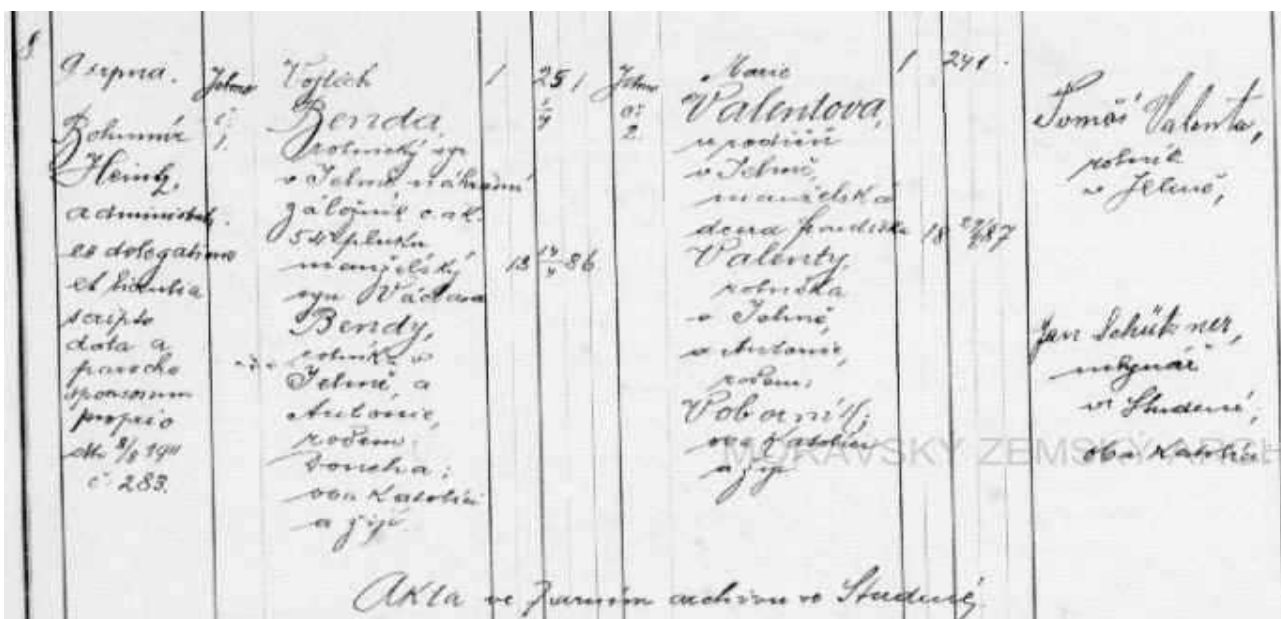 8.
9 srpna.
Bohumír
Heintz,
administr.
ex delegatione
et licentia
scripto
data a
parocho
sponsorum
proprio
dto 8/8 1911
č 283.
Jelmo
č
1.
Vojtěch
Benda,
rolnický syn
v Jelmě, náhradní
záložník c. a k.
54 pluku
manželský
syn Václava
Bendy,
rolníka v
Jelmě, a
Antonie,
rozem
Doncha;
oba katolíci
a žijí.
1
25 1
13 14/4 86
Jelmo
č
2.
Marie
Valentova,
u rodičů
v Jelmě,
manželská
dcera Františka
Valenty,
rolníka
v Jelmě,
a Antonie,
rozem:
Voborník;
oba katolíci
a žijí
1
24
18 87
Tomáš Valenta,
rolník
v Jelmě,
Jan Schükner,
mlynář
ve Studené,
oba katolíci
MORAVSKÝ ZEMSKÝ ARCH
Akta ve farním archivu ve Studené.